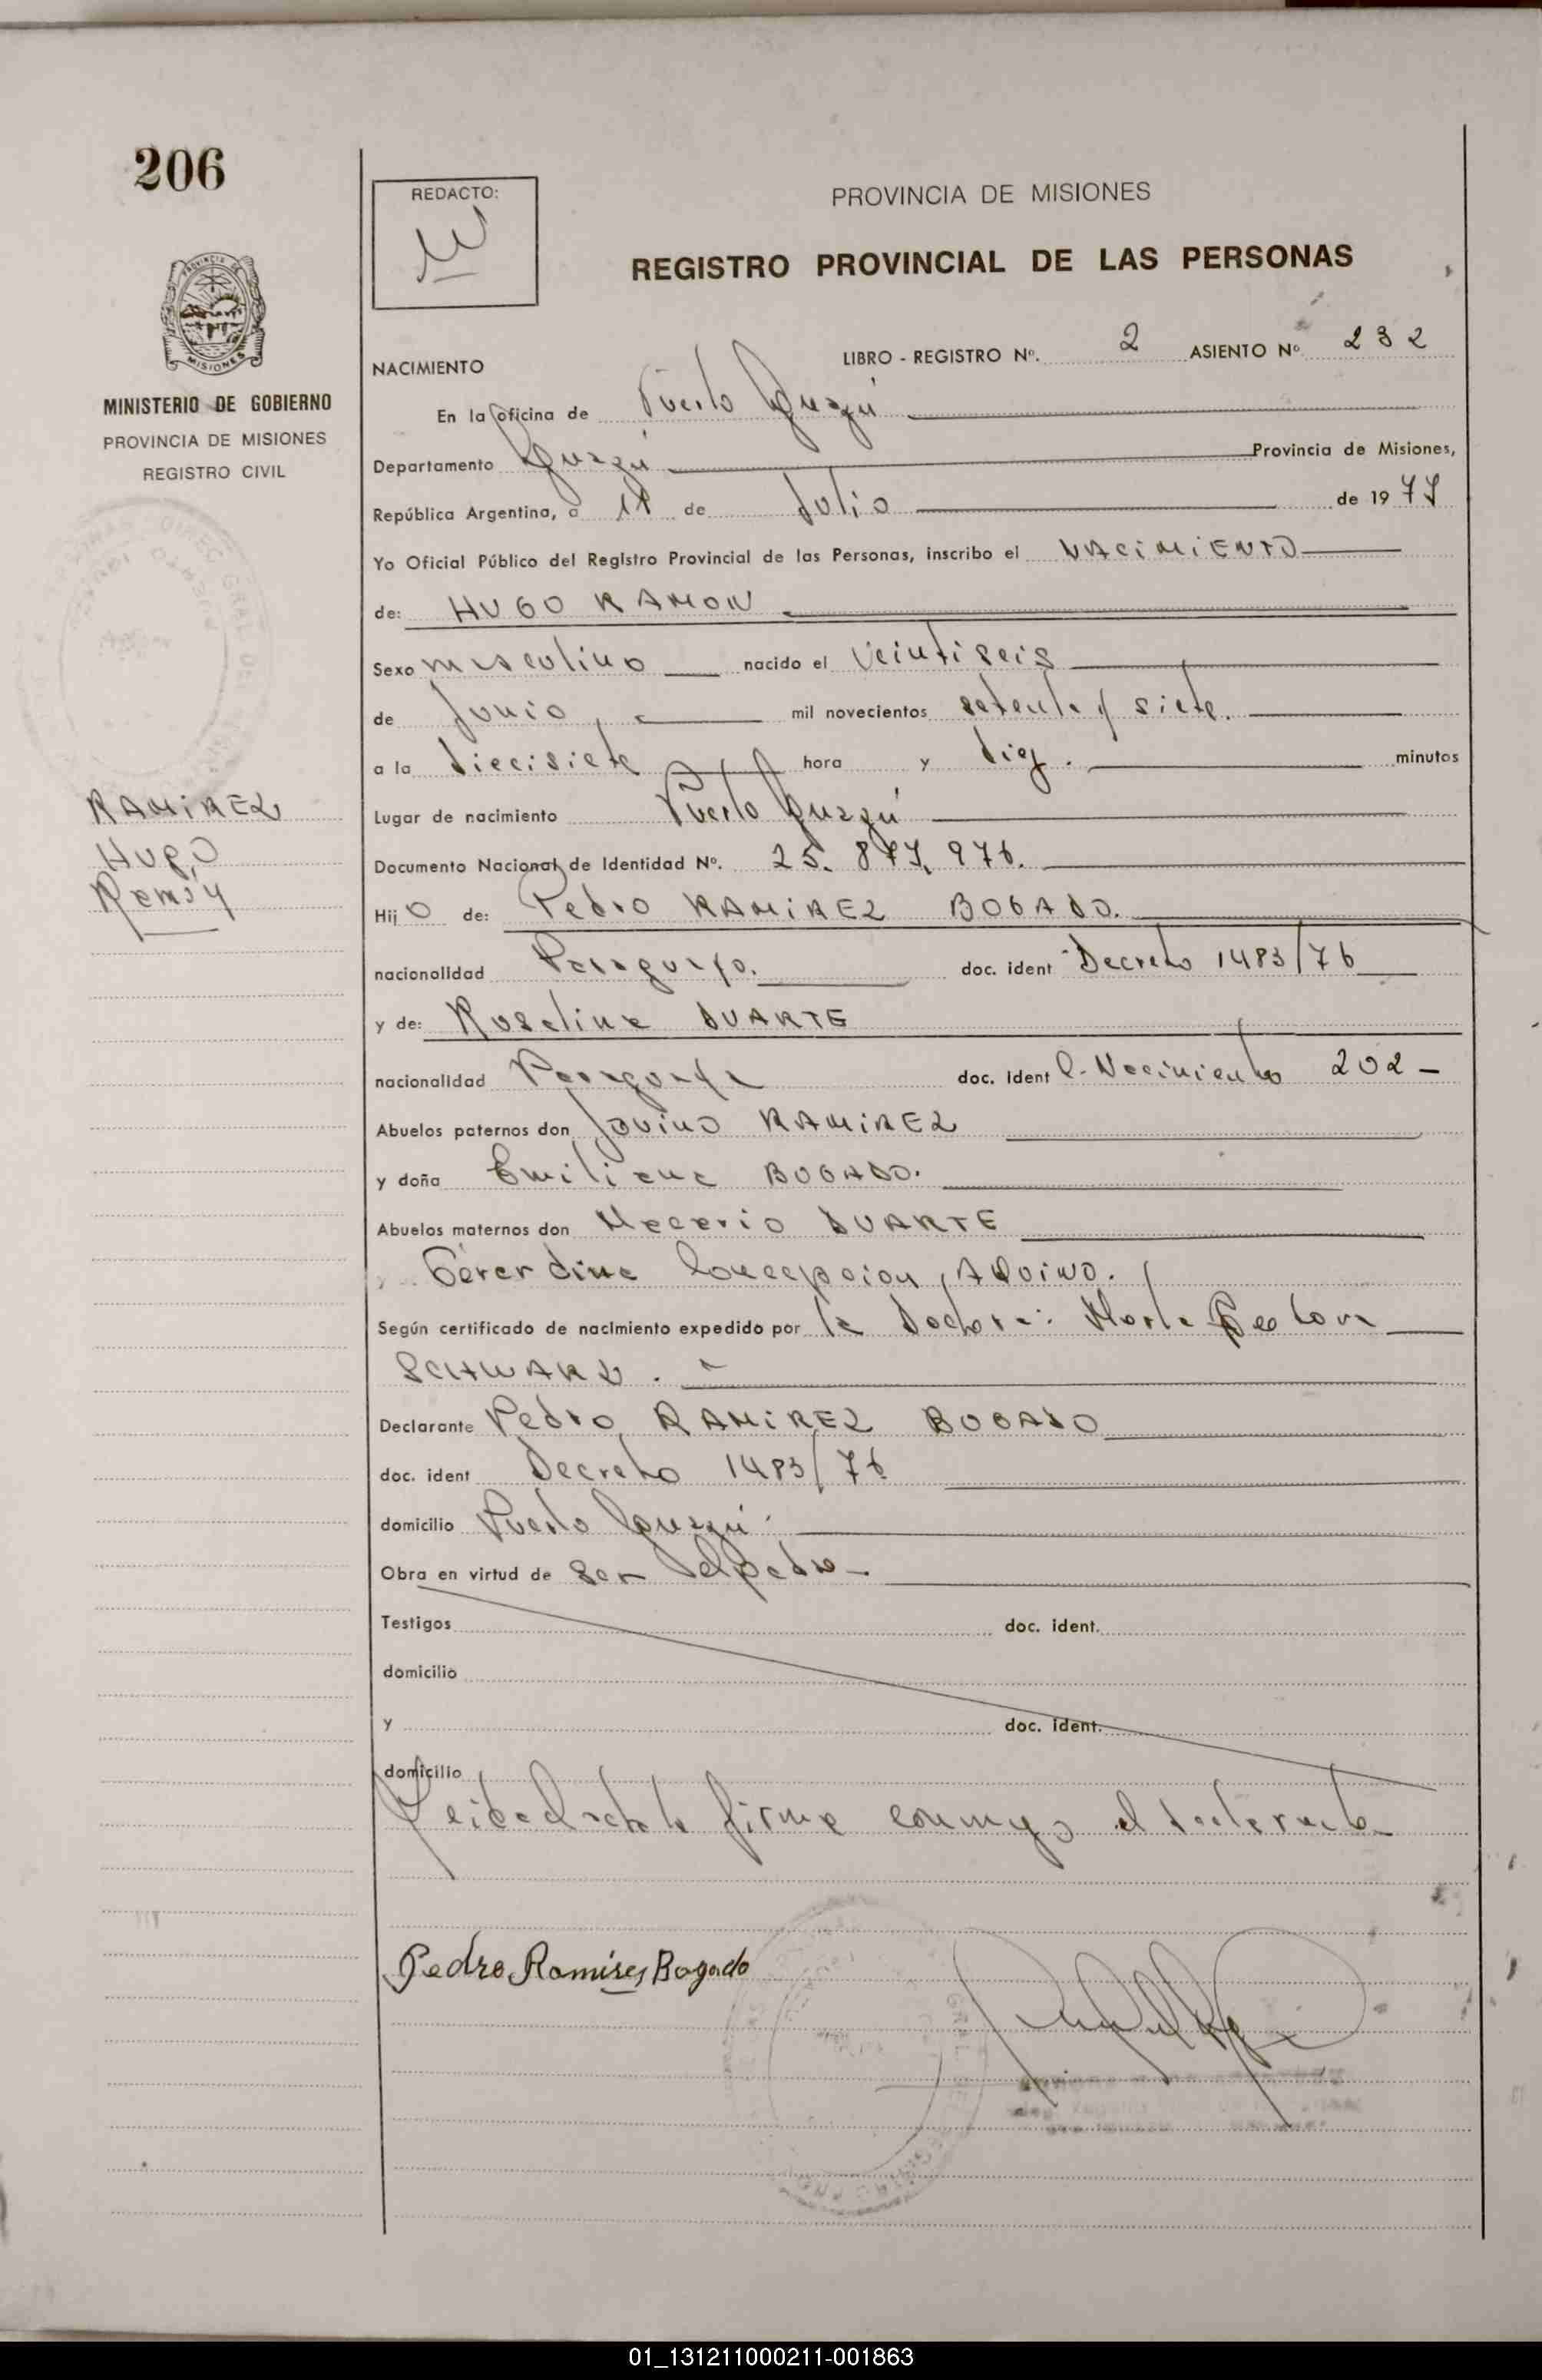 206
REDACTO:
PROVINCIA DE MISIONES
REGISTRO PROVINCIAL DE LAS PERSONAS
MINISTERIO DE GOBIERNO
PROVINCIA DE MISIONES
REGISTRO CIVIL
NACIMIENTO LIBRO - REGISTRO Nº. 2 ASIENTO Nº 232
En la oficina de Puerto Iguazú
Departamento Iguazú Provincia de Misiones,
República Argentina, a de Julio de 1977
Yo Oficial Público del Registro Provincial de las Personas, inscribo el NACIMIENTO
de: HUGO RAMON
Sexo masculino nacido el veintiseis
de Junio, mil novecientos setenta y siete.
a la diecisiete hora y diez. minutos
RAMIREZ
Hugo
Ramón
Lugar de nacimiento Puerto Iguazú
Documento Nacional de Identidad Nº. 25.877.976.
Hijo de: Pedro RAMIREZ BOGADO.
nacionalidad Paraguayo. doc. ident Decreto 1483/76
y de: Roselina DUARTE
nacionalidad Paraguaya doc. ident C. Nacimiento 202-
Abuelos paternos don Jovino RAMIREZ
y doña Emiliana BOGADO.
Abuelos maternos don Macario DUARTE
Concepcion, AQUINO.
Según certificado de nacimiento expedido por la Doctora: Marta
SCHWARZ.
Declarante Pedro RAMIREZ BOGADO
doc. ident Decreto 1483/76
domicilio Puerto Iguazú.
Obra en virtud de ser el padre-
Testigos doc. ident.
domicilio
y doc. ident.
domicilio
Leida el acta la firma conmigo el declarante
Pedro Ramires Bogado
01_131211000211-001863